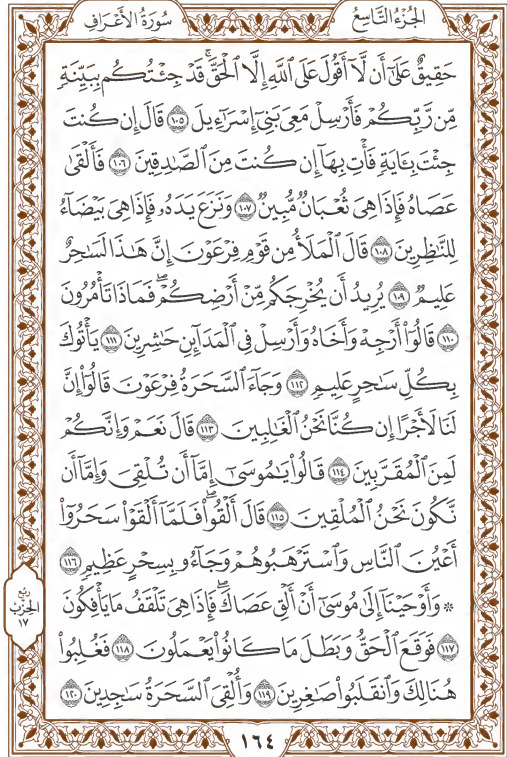 الجزء التاسع
سورة الأعراف
حَقِيقٌ عَلَىٰٓ أَن لَّآ أَقُولَ عَلَى ٱللَّهِ إِلَّا ٱلْحَقَّ ۚ قَدْ جِئْتُكُم بِبَيِّنَةٍ
مِّن رَّبِّكُمْ فَأَرْسِلْ مَعِىَ بَنِىٓ إِسْرَٰٓءِيلَ ١٠٥ قَالَ إِن كُنتَ
جِئْتَ بِـَٔايَةٍ فَأْتِ بِهَآ إِن كُنتَ مِنَ ٱلصَّـٰدِقِينَ ١٠٦ فَأَلْقَىٰ
عَصَاهُ فَإِذَا هِىَ ثُعْبَانٌ مُّبِينٌ ١٠٧ وَنَزَعَ يَدَهُۥ فَإِذَا هِىَ بَيْضَآءُ
لِلنَّـٰظِرِينَ ١٠٨ قَالَ ٱلْمَلَأُ مِن قَوْمِ فِرْعَوْنَ إِنَّ هَـٰذَا لَسَـٰحِرٌ
عَلِيمٌ ١٠٩ يُرِيدُ أَن يُخْرِجَكُم مِّنْ أَرْضِكُمْ ۖ فَمَاذَا تَأْمُرُونَ
١١٠ قَالُوٓا۟ أَرْجِهْ وَأَخَاهُ وَأَرْسِلْ فِى ٱلْمَدَآئِنِ حَـٰشِرِينَ ١١١ يَأْتُوكَ
بِكُلِّ سَـٰحِرٍ عَلِيمٍ ١١٢ وَجَآءَ ٱلسَّحَرَةُ فِرْعَوْنَ قَالُوٓا۟ إِنَّ
لَنَا لَأَجْرًا إِن كُنَّا نَحْنُ ٱلْغَـٰلِبِينَ ١١٣ قَالَ نَعَمْ وَإِنَّكُمْ
لَمِنَ ٱلْمُقَرَّبِينَ ١١٤ قَالُوا۟ يَـٰمُوسَىٰٓ إِمَّآ أَن تُلْقِىَ وَإِمَّآ أَن
نَّكُونَ نَحْنُ ٱلْمُلْقِينَ ١١٥ قَالَ أَلْقُوا۟ ۖ فَلَمَّآ أَلْقَوْا۟ سَحَرُوٓا۟
أَعْيُنَ ٱلنَّاسِ وَٱسْتَرْهَبُوهُمْ وَجَآءُو بِسِحْرٍ عَظِيمٍ ١١٦
۞ وَأَوْحَيْنَآ إِلَىٰ مُوسَىٰٓ أَنْ أَلْقِ عَصَاكَ ۖ فَإِذَا هِىَ تَلْقَفُ مَا يَأْفِكُونَ
١١٧ فَوَقَعَ ٱلْحَقُّ وَبَطَلَ مَا كَانُوا۟ يَعْمَلُونَ ١١٨ فَغُلِبُوا۟
هُنَالِكَ وَٱنقَلَبُوا۟ صَـٰغِرِينَ ١١٩ وَأُلْقِىَ ٱلسَّحَرَةُ سَـٰجِدِينَ ١٢٠
ربع
الحزب
١٧
١٦٤